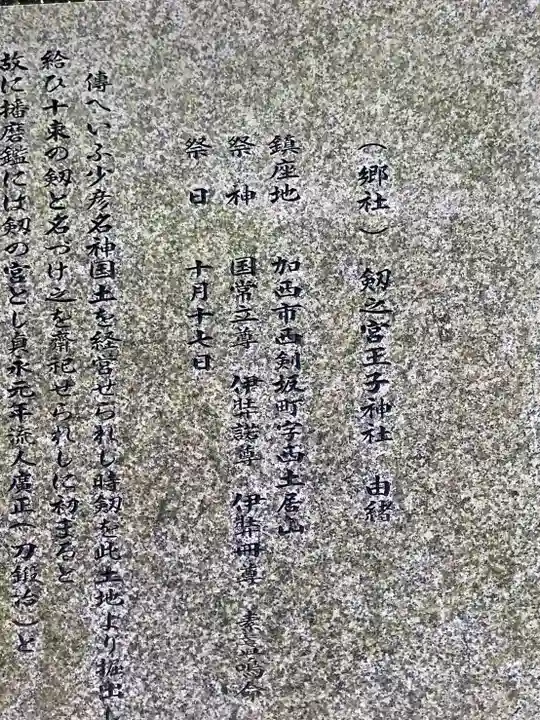 （郷社） 剱之宮王子神社 由緒
鎮座地 加西市西剣坂町字西土居山
祭神 国常立尊 伊弉諾尊 伊弉冊尊 素盞嗚尊
祭日 十月十七日
傳へいふ少彦名神国土を経営せられし時剱を此土地より掘出し
給ひ十束の剱と名づけ之を齋祀せられしに初まると
故に播磨鑑には剱の宮とし貞永元年流人廣正（刀鍛冶）と